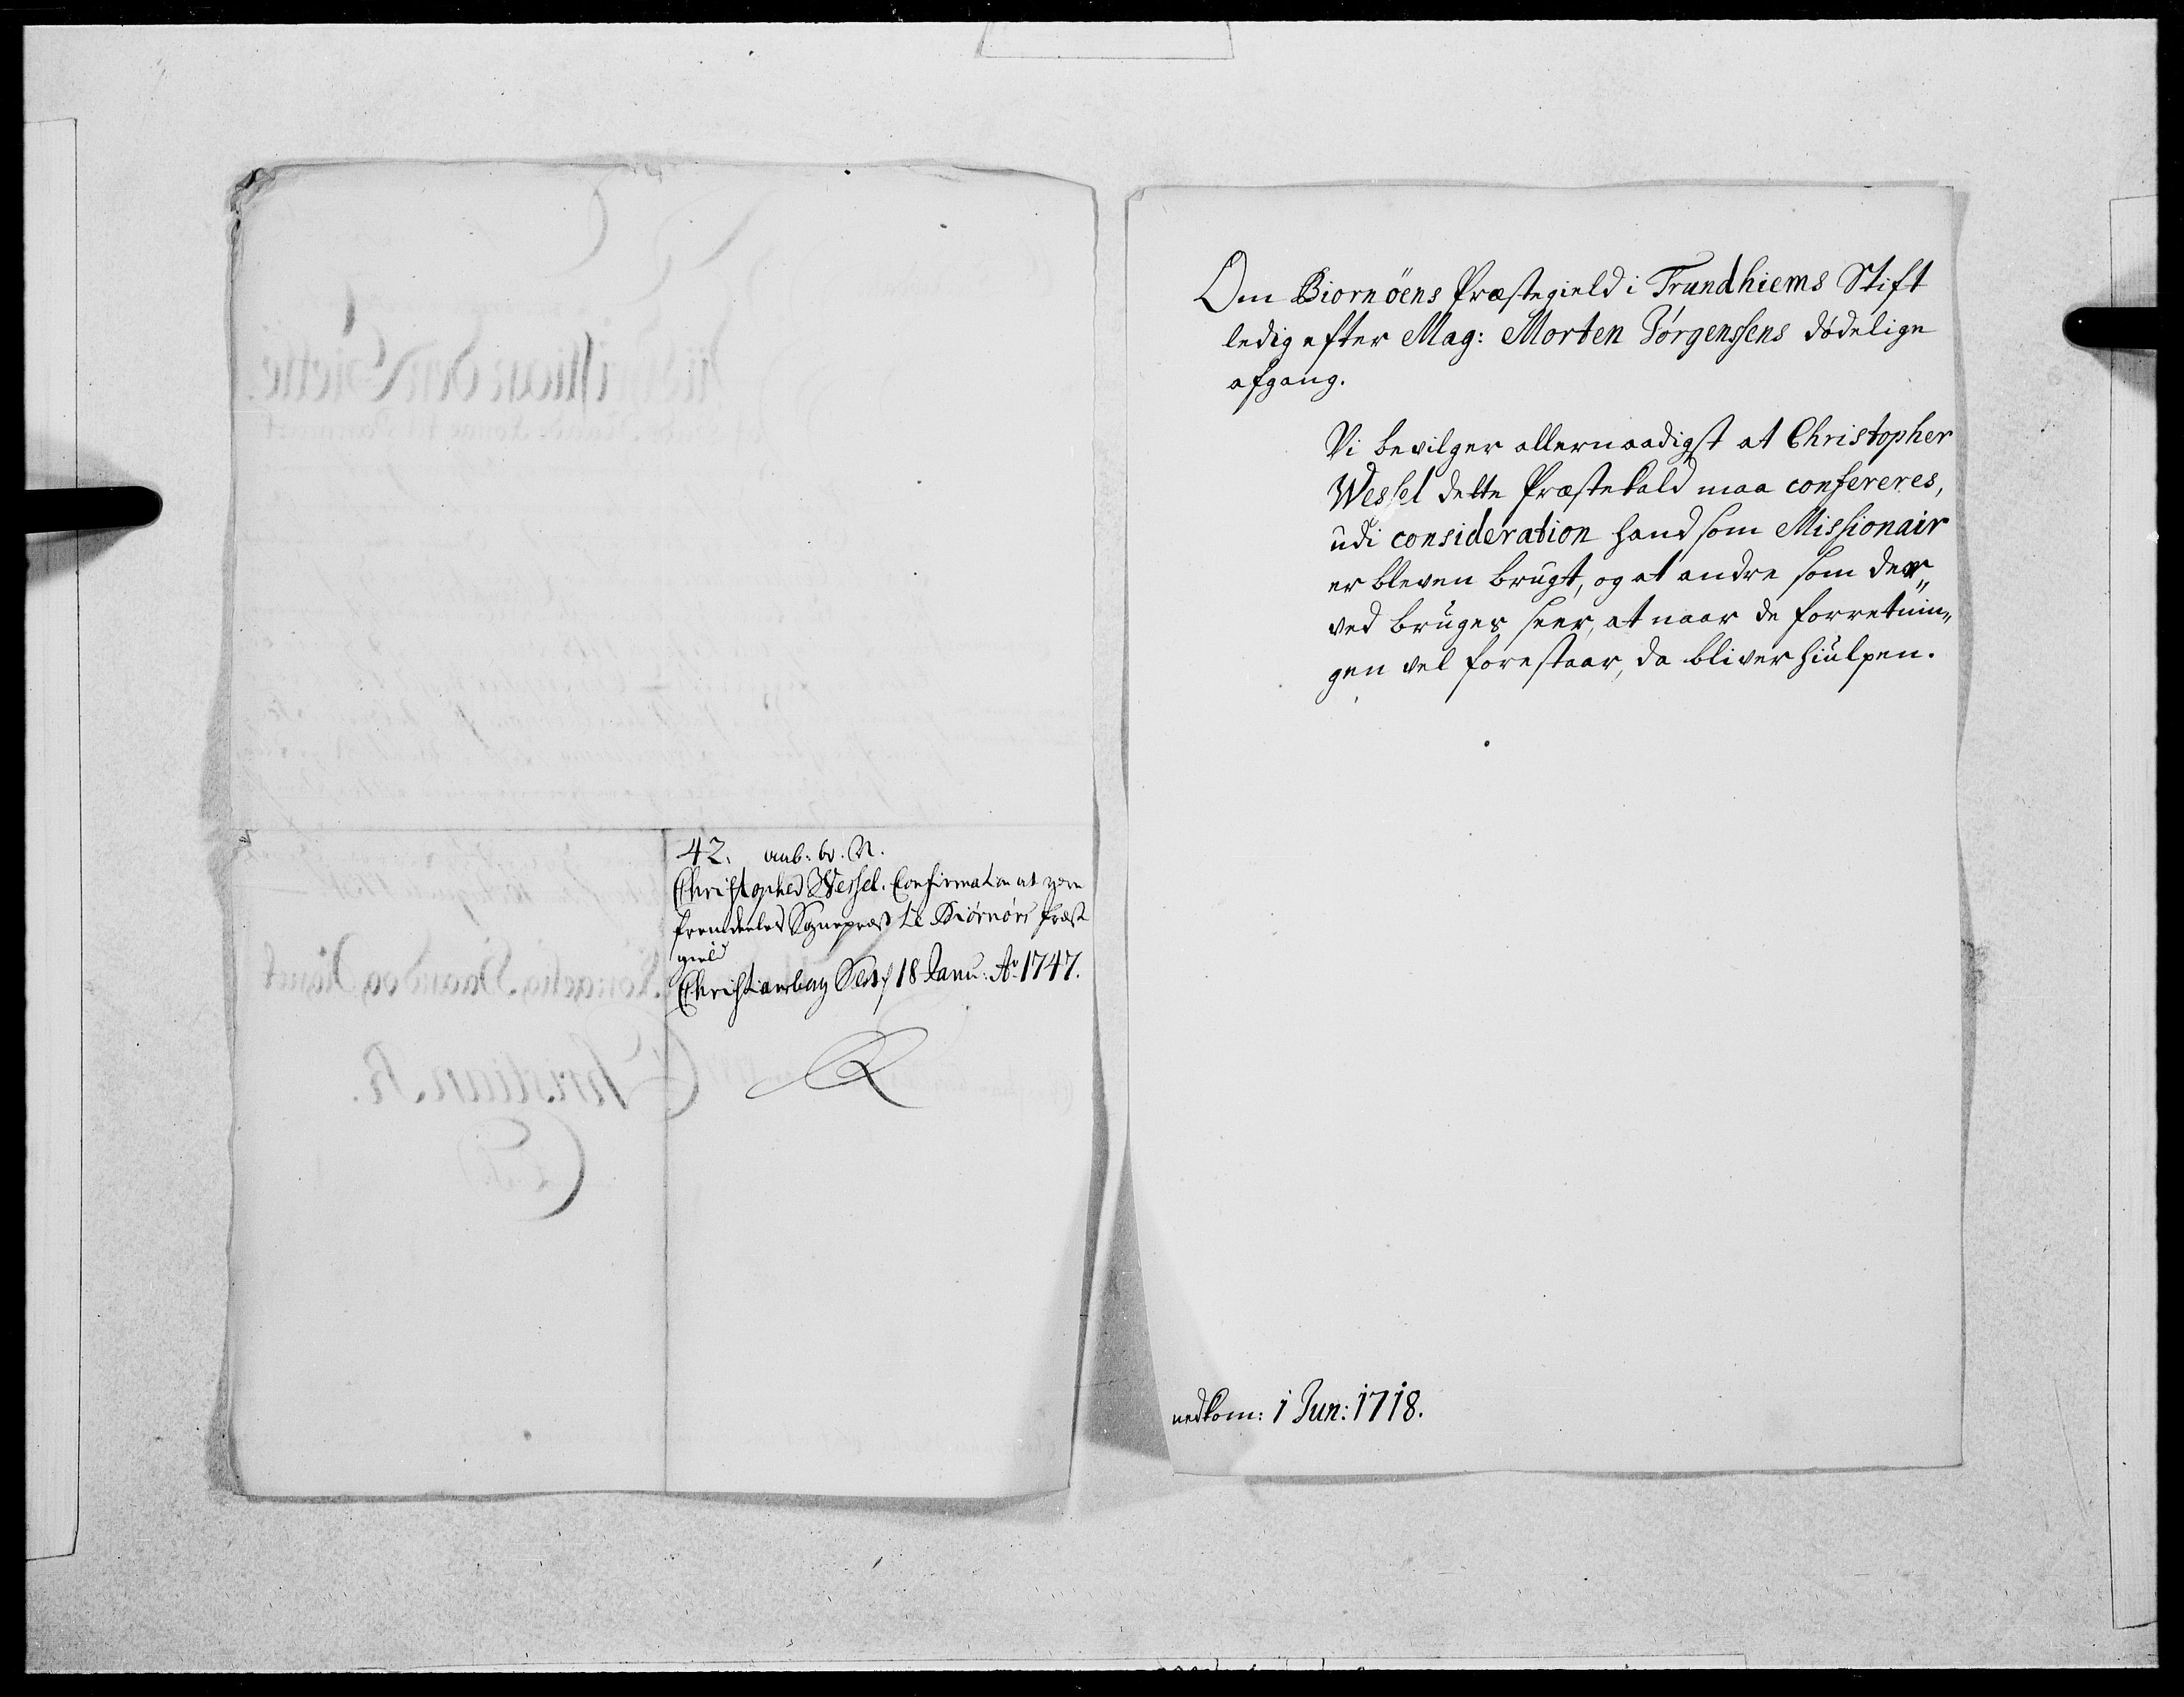 42.
Christopher Wessel. Confirmation at være
fremdeeles Sognepræst til Biørnørs Præste
gield
Christiansborg Slot 18 Janu: Ao 1747.
Om Biornöens Præstegield i Trundhiems Stift
ledig efter Mag: Morten Jörgenssens dödelige
afgang.
Vi bevilger allernaadigst at Christopher
Wessel dette Præstekald maa confereres,
udi consideration hand som Missionair
er bleven brugt, og at andre som der„
ved bruges seer, at naar de forretnin„
gen vel forestaar, da bliver hiulpen.
nedkom: 1 Jun: 1718.